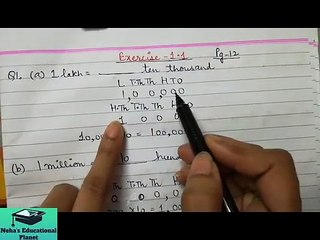 Exercise - 1.1 Pg-12
Q1. (a) 1 lakh = ten thousand
L T.Th Th H T O
1, 0 0, 0 0 0
H.Th T.Th Th H
1 0 0 0
10,00 = 100,00
(b) 1 million = 10 hund
0, 0 0
x 10 = 1,0
Neha's Educational
Planet